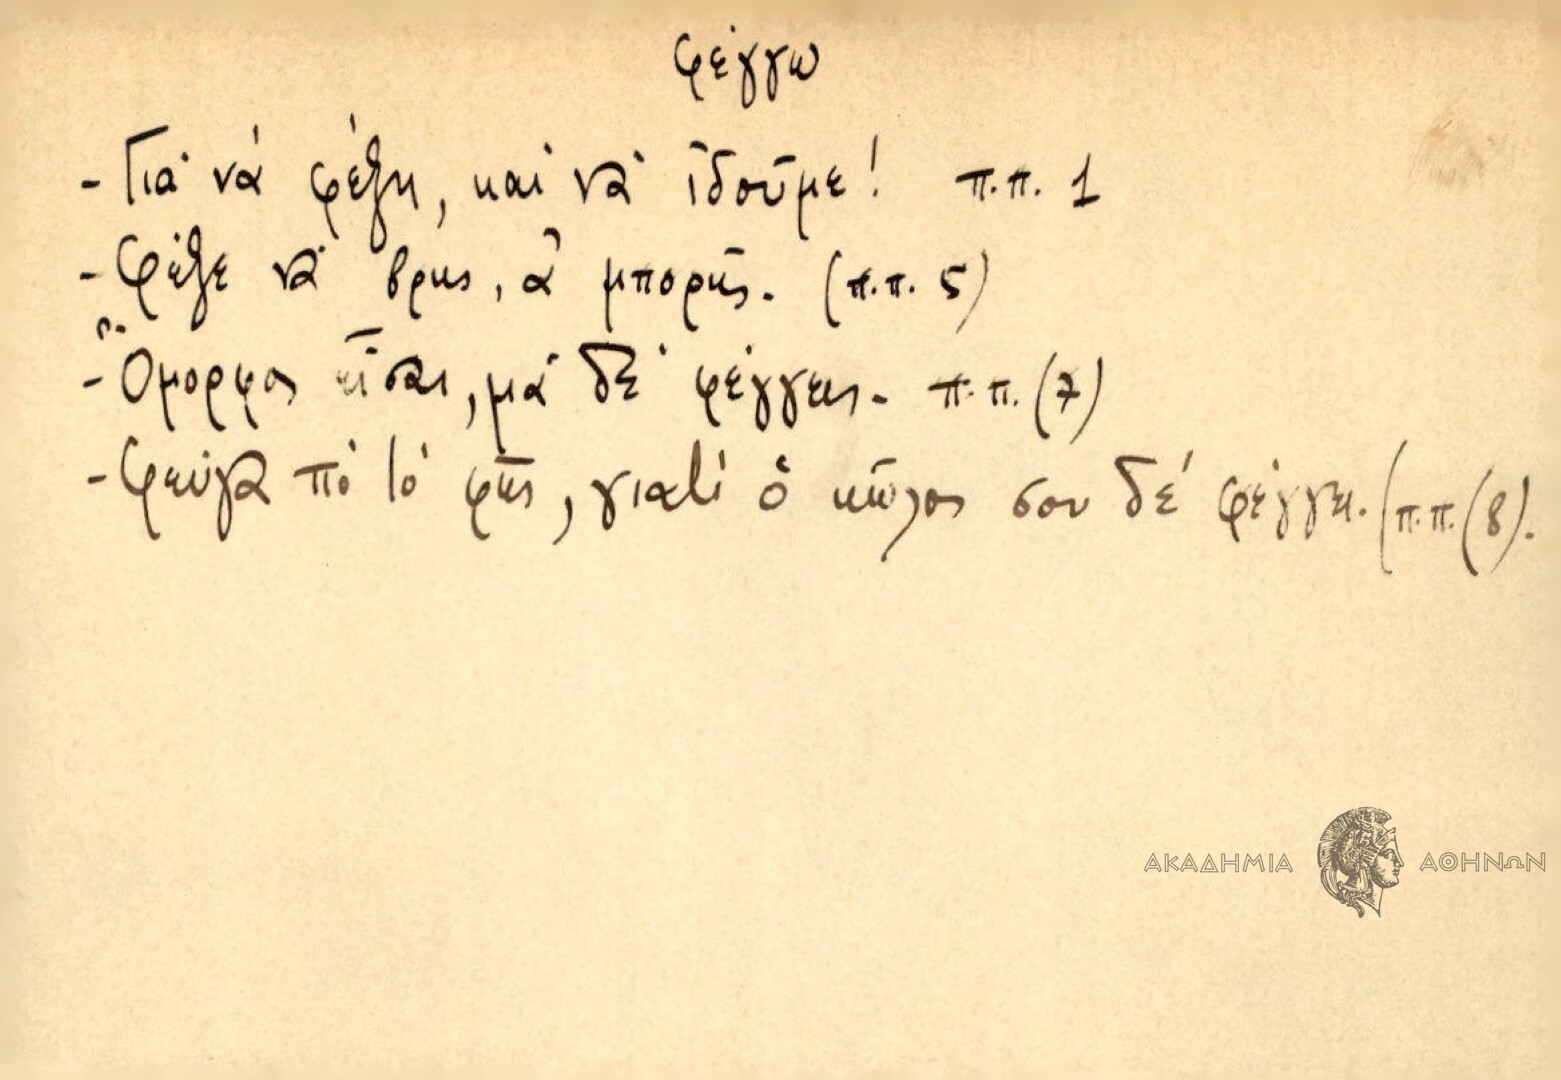 φέγγω
- Γιὰ νά φέξη, καὶ νὰ ἰδοῦμε! π.π. 1
- Φέξε νὰ βρῆς, ἂ μπορῆς. (π.π. 5)
- Ὄμορφος εἶσαι, μὰ δὲ φέγγεις. π.π. (7)
- Φεύγα πὸ τὸ φῶς, γιατὶ ὁ κῶλος σου δέ φέγγει. (π.π. (8).
ΑΚΑΔΗΜΙΑ ΑΘΗΝΩΝ